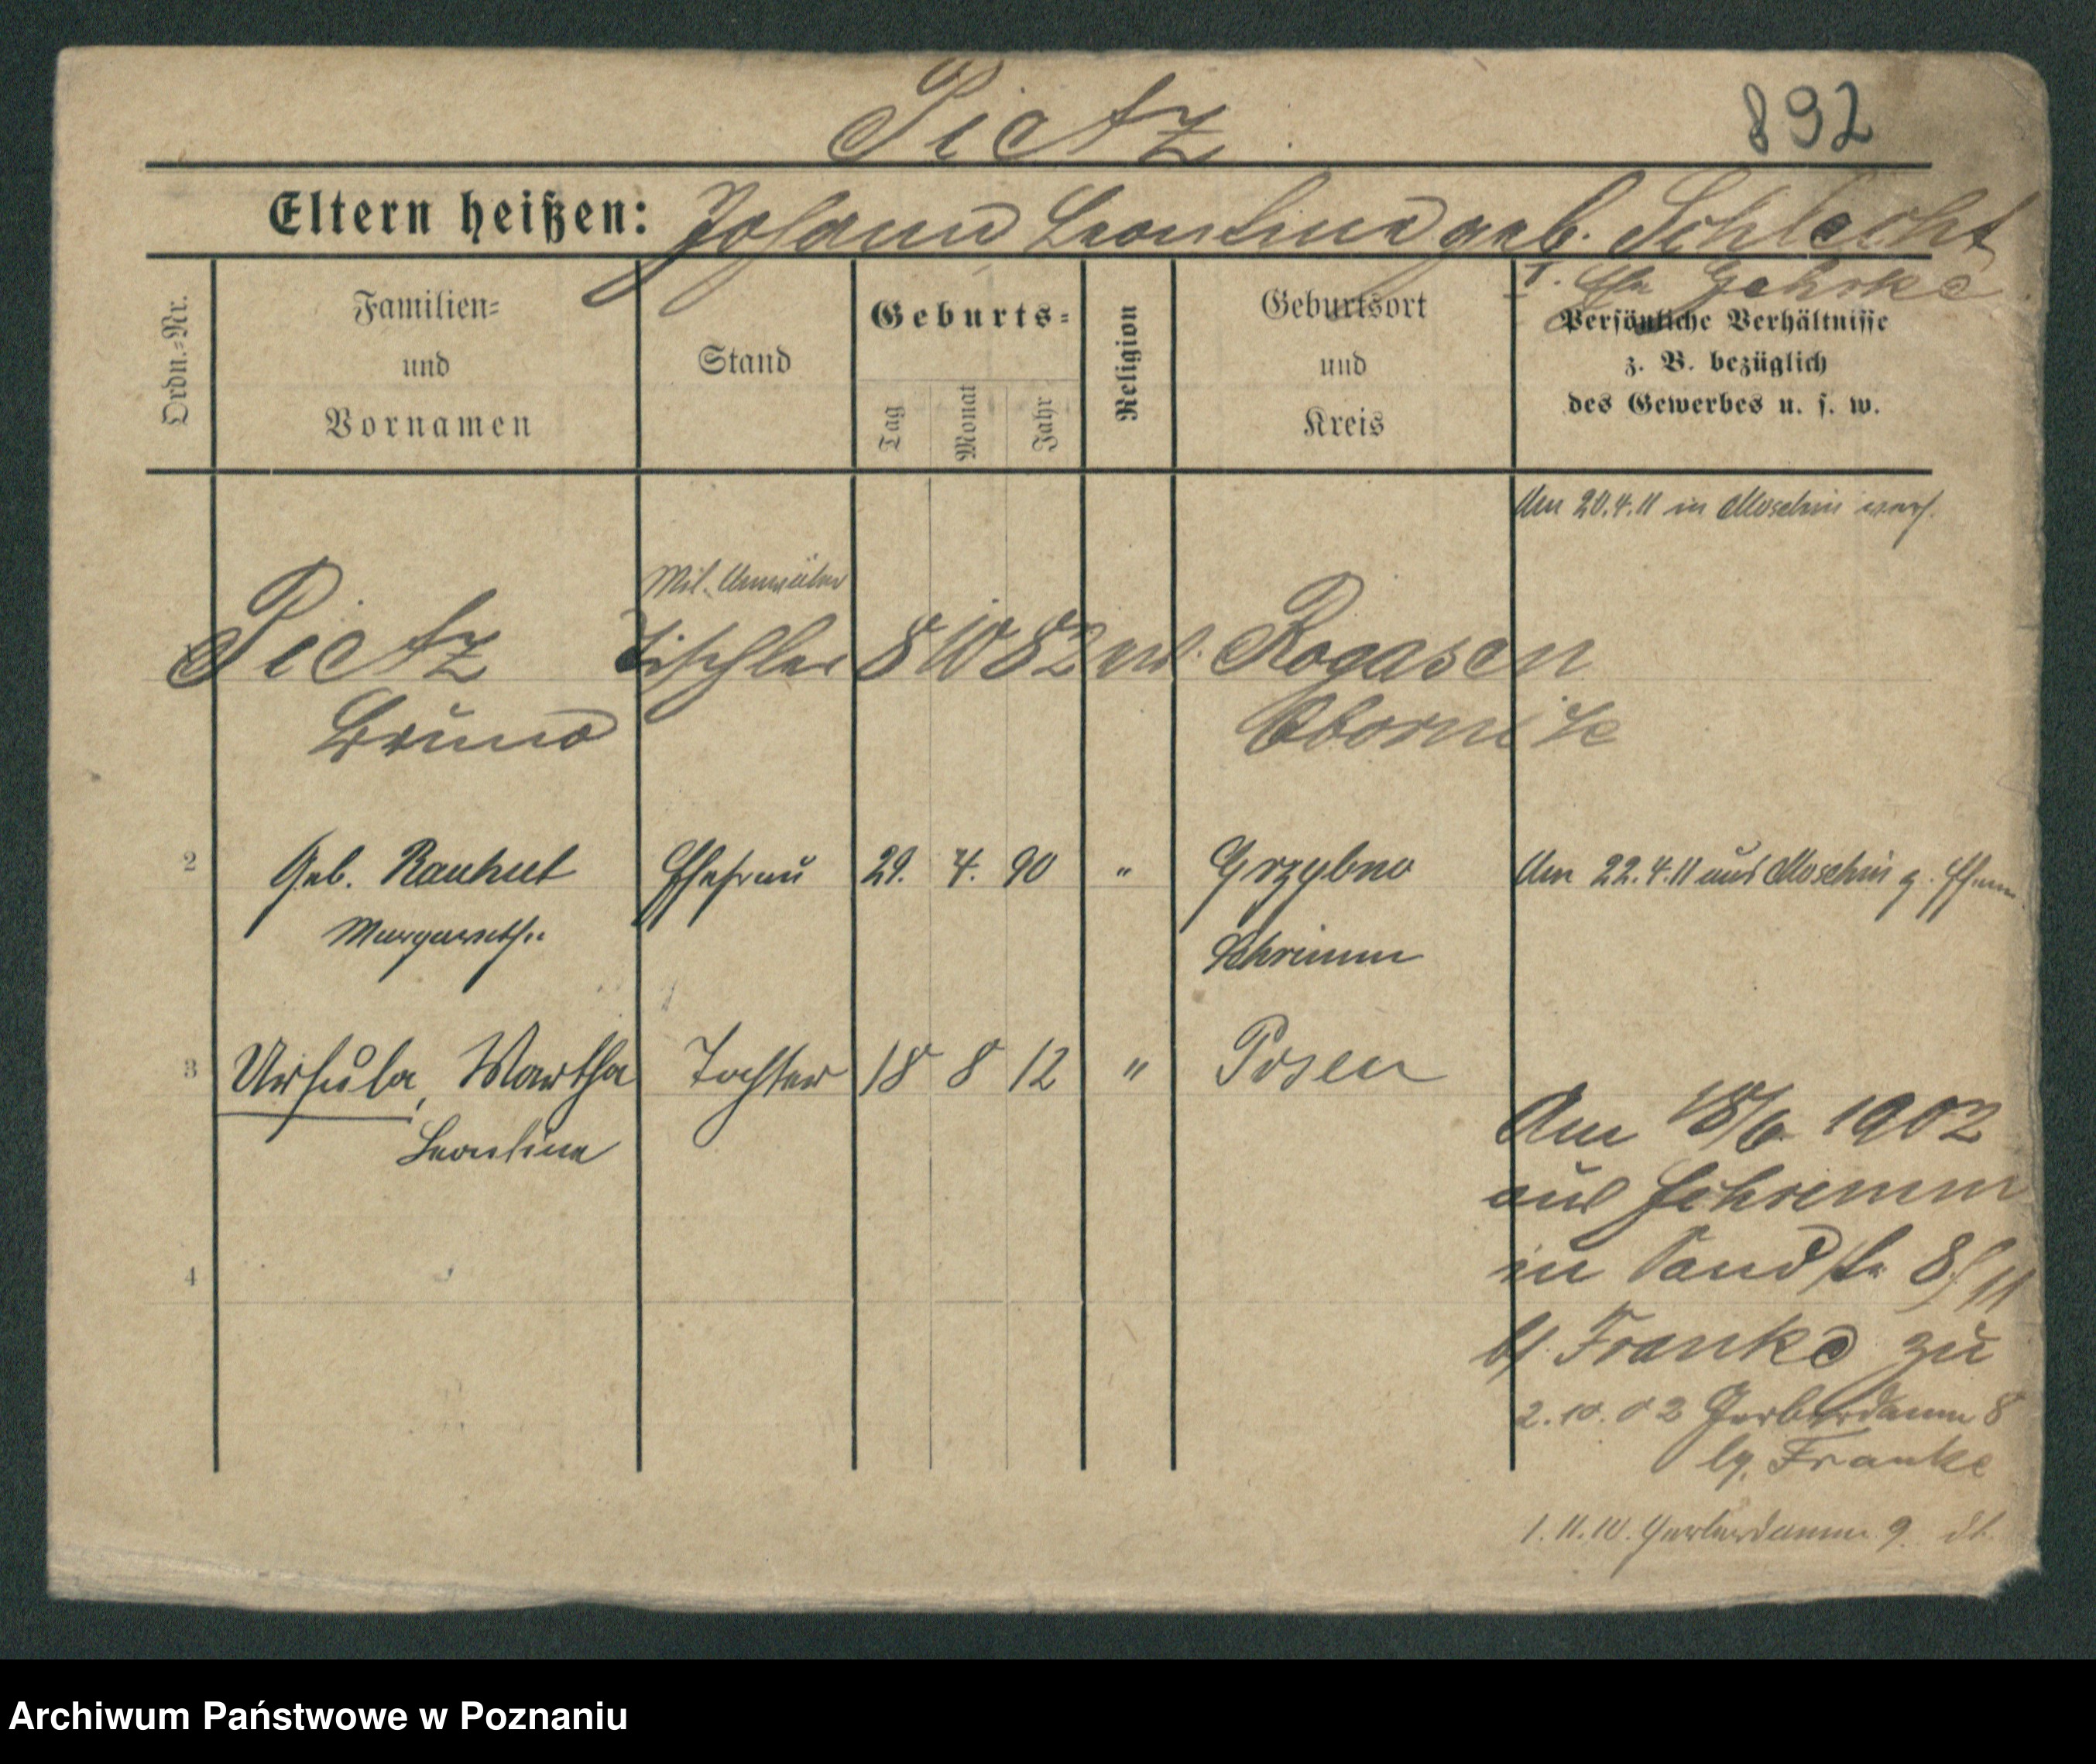 Pietz
892
Eltern heißen: Johann Leontine geb. Schlecht
Gehrke
Ordn.-Nr.
Familien-
und
Vornamen
Stand
Geburts-
Tag
Monat
Jahr
Religion
Geburtsort
und
Kreis
Persönliche Verhältnisse
z. B. bezüglich
des Gewerbes u. s. w.
Am 20.4.11 in Moschin verh.
Mil. Anwärter
Pietz Tischler 8 10 82 Rogasen
Bruno Obornik
2 Geb. Rauhut Ehefrau 29. 4. 90 " Grzybno Am 22.4.11 aus Moschin z. Ehem.
Margarethe Schrimm
3 Ursula, Martha Tochter 18 8 12 " Posen
Leontine
Am 18/6 1902
aus Schrimm
in Sandstr 8
4
b/ Franke zu
2.10.02 Gerberdamm 8
bg. Franke
1.11.10. Gerberdamm 9.
Archiwum Państwowe w Poznaniu